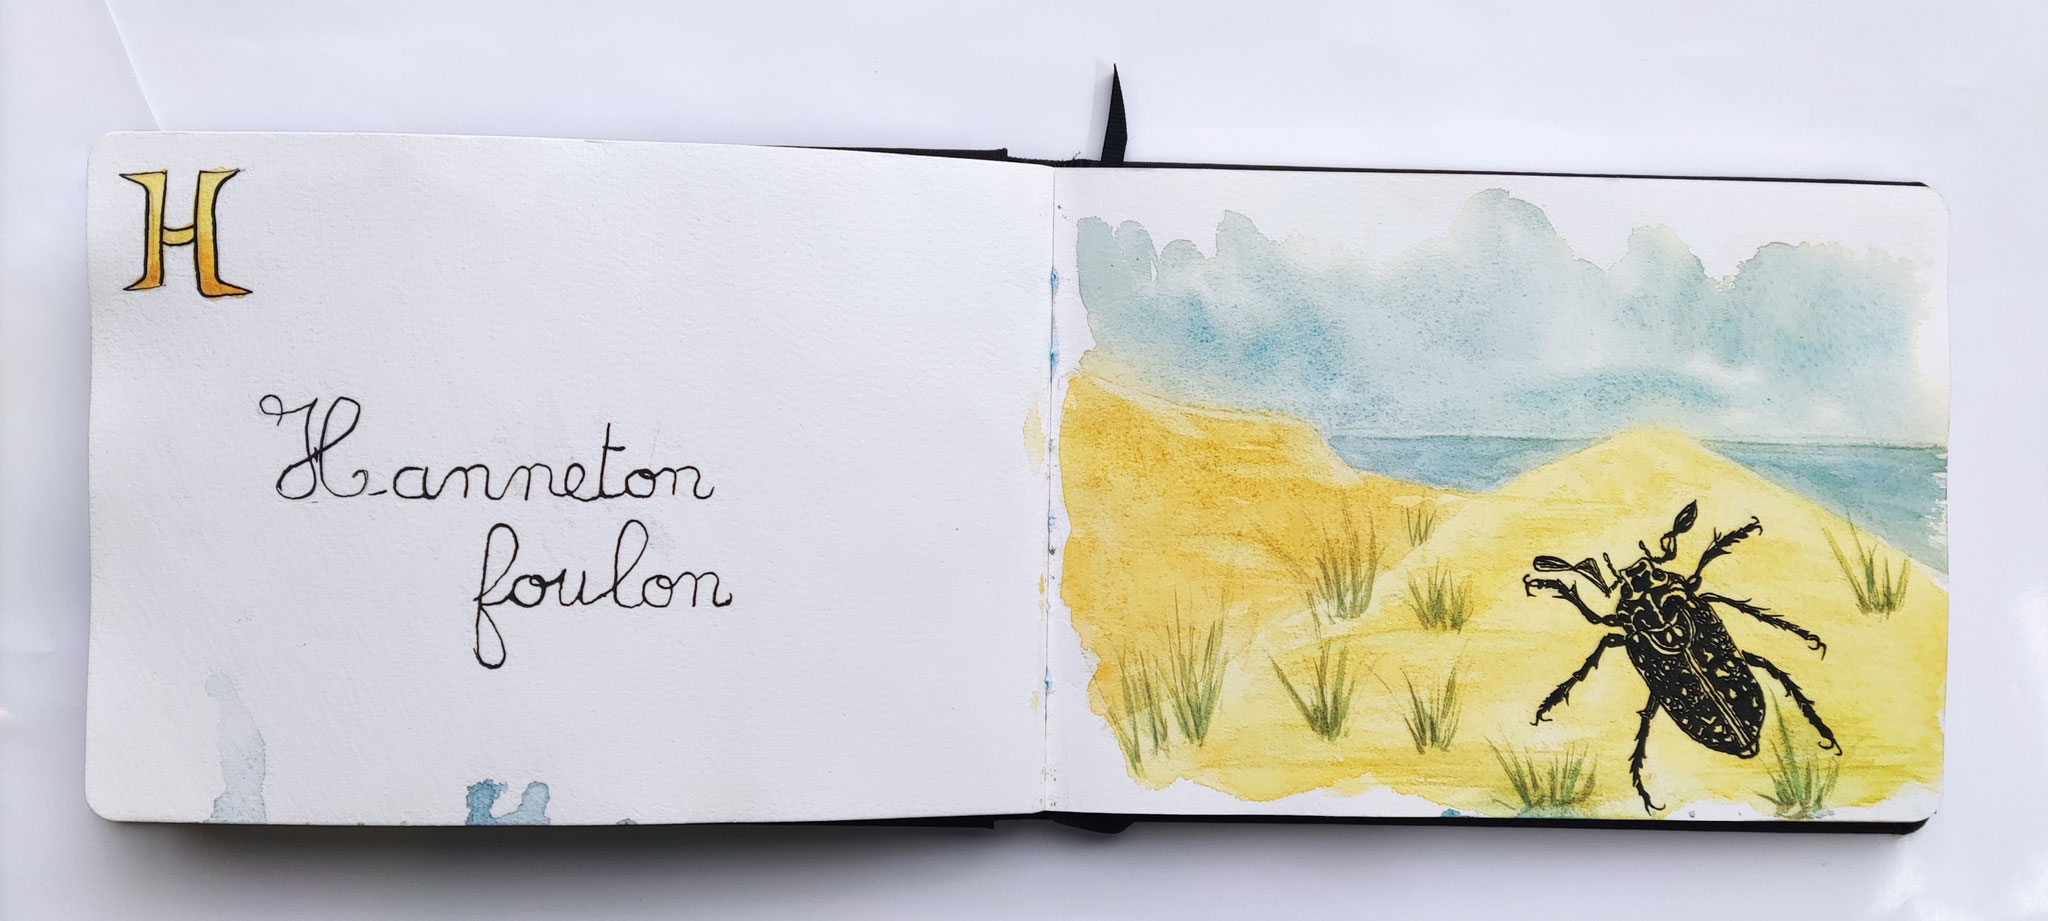 H
Hanneton
foulon